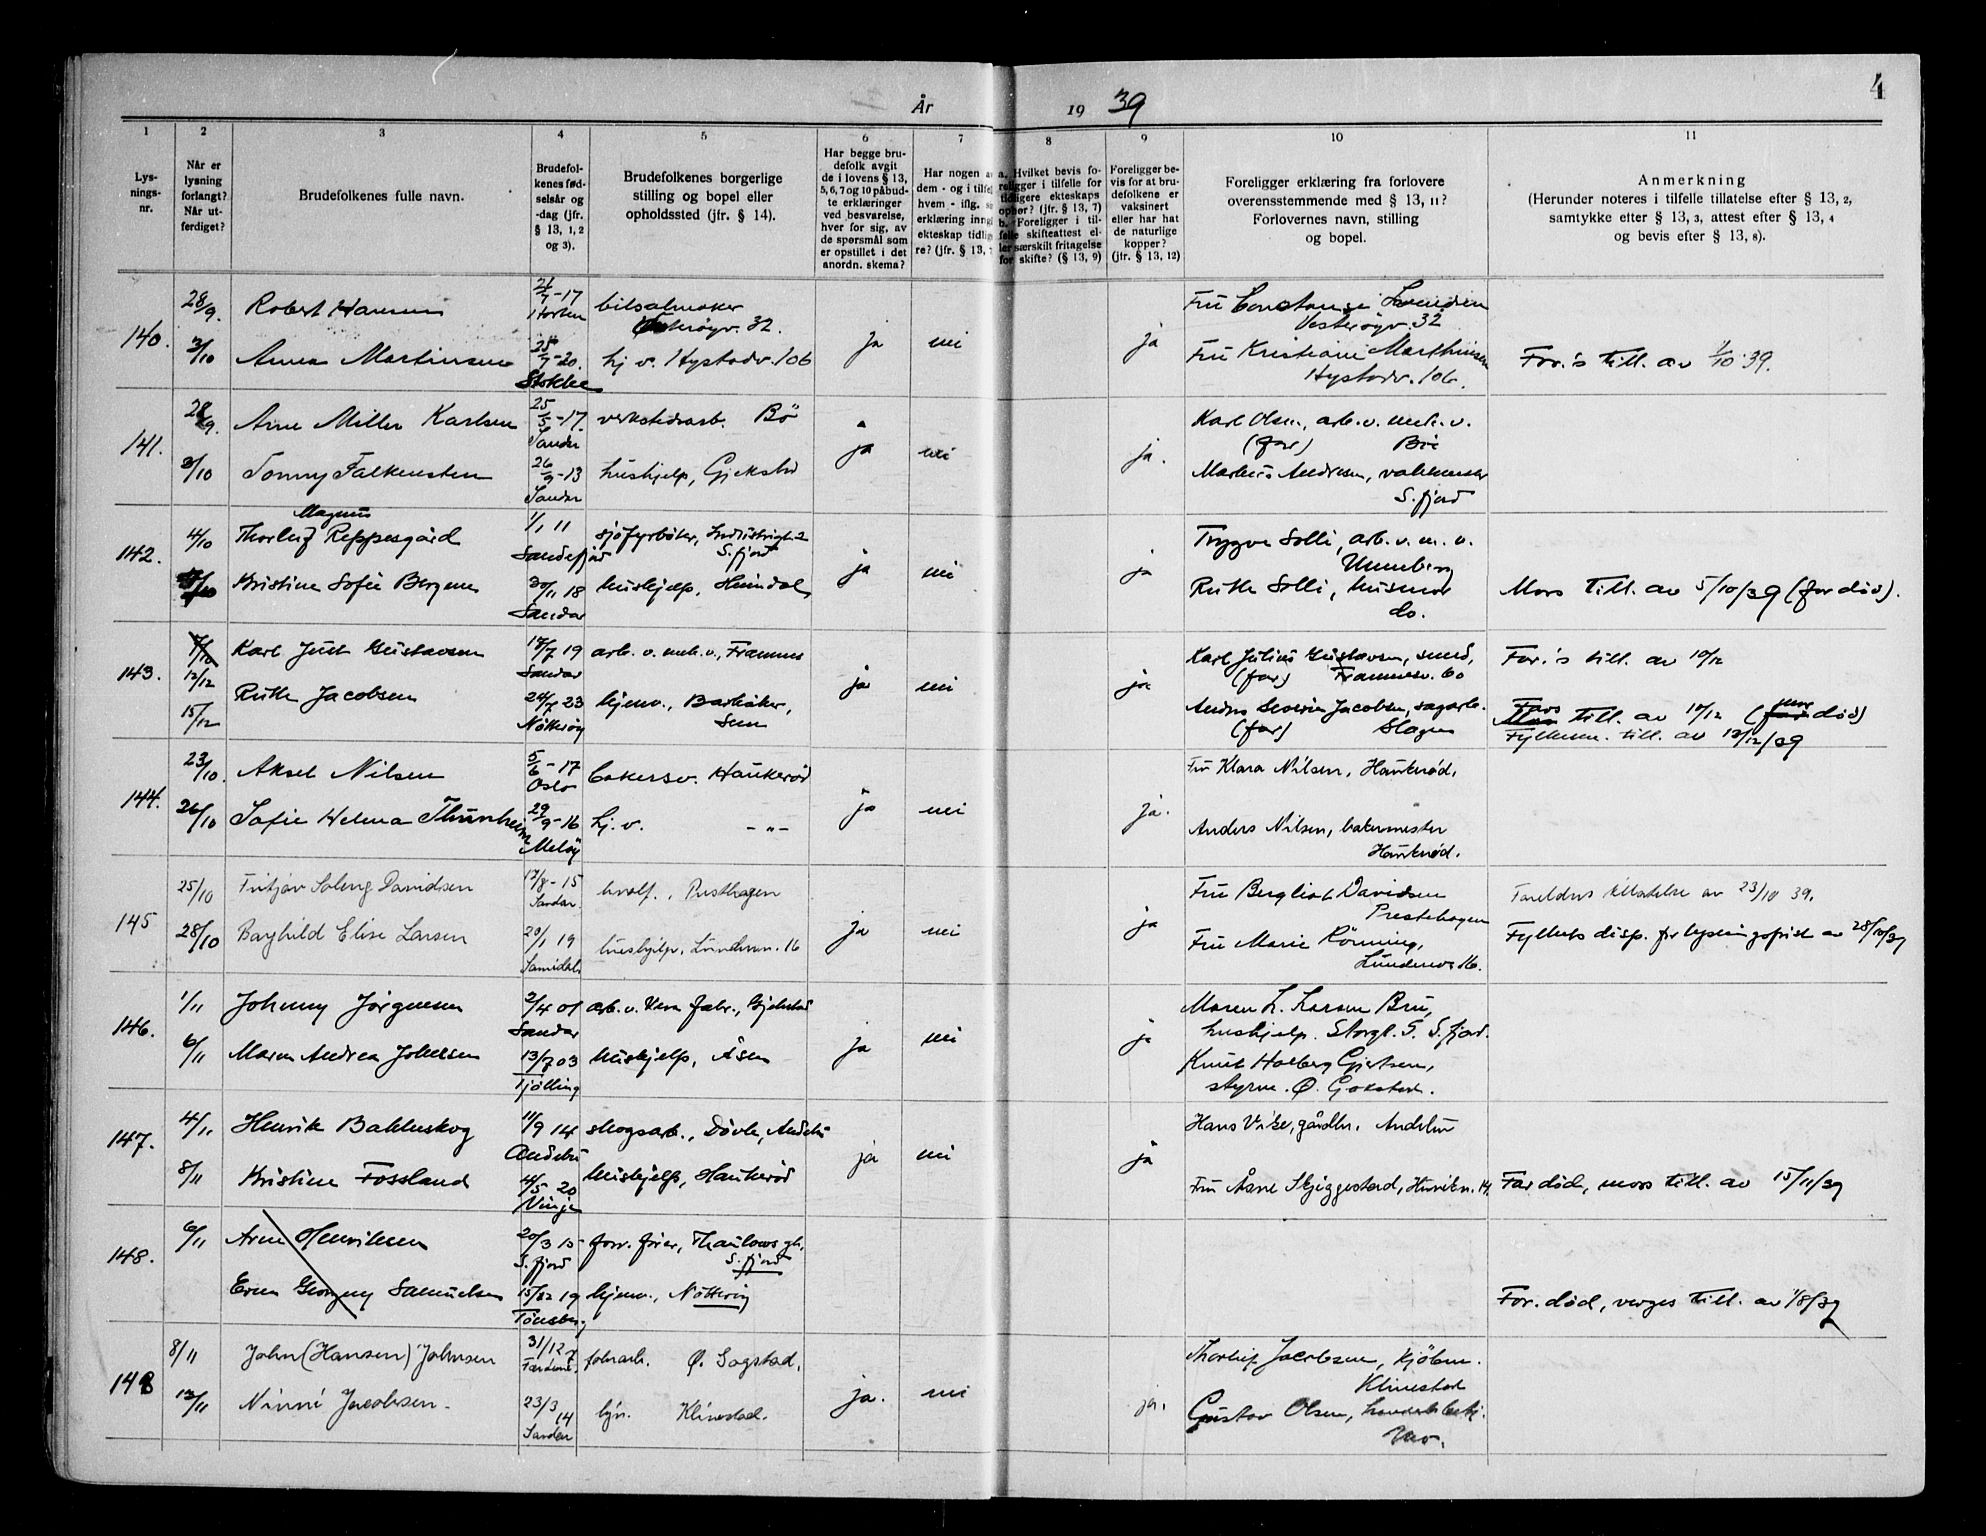 4
År 19 39
1 2 3 4 5 6 7 8 9 10 11
Lys-
nings-
nr.
Når er
lysning
forlangt?
Når ut-
ferdiget?
Brudefolkenes fulle navn.
Brudefol-
kenes fød-
selsår og
-dag (jfr.
§ 13, 1, 2
og 3).
Brudefolkenes borgerlige
stilling og bopel eller
opholdssted (jfr. § 14).
Har begge bru-
defolk avgit
de i lovens § 13,
5, 6, 7 og 10 påbud-
te erklæringer
ved besvarelse,
hver for sig, av
de spørsmål som
er opstillet i det
anordn. skema?
Har nogen a
dem - og i tilfel
hvem - iflg.
erklæring inng
ekteskap tidlig
re? (jfr. § 13,
a. Hvilket bevis fo-
religger i tilfelle for
tidligere ekteskaps
ophør? (jfr. § 13, 7)
b. Foreligger i til-
felle skifteattest el-
ler særskilt fritagelse
for skifte? (§ 13, 9)
Foreligger be-
vis for at bru-
defolkene er
vaksinert
eller har hat
de naturlige
kopper?
(jfr. § 13, 12)
Foreligger erklæring fra forlovere
overensstemmende med § 13, 11?
Forlovernes navn, stilling
og bopel.
Anmerkning
(Herunder noteres i tilfelle tillatelse efter § 13, 2,
samtykke efter § 13, 3, attest efter § 13, 4
og bevis efter § 13, 8).
140.
28/9. Robert Hansen 7-17 Horten bilsalmaker
Vesterøyv. 32.
3/10 Anna Martinsen 25/7-20. Stokke hj. v. Hystadv. 106
ja nei ja
Fru Constanse
Vesterøyv. 32
Fru Kristiane Marthinsen
Hystadv. 106.
For.'s till. av 1/10 39.
141.
28/9. Arne Miller Karlsen 25/5-17. Sandar verkstedsarb. Bö
3/10 Tonny Falkensten 26/9-13 Sandar hushjelp, Gjekstad
ja nei ja.
Karl Olsen, arb. v. mek. v.
(far) Bøe
Markus Andresen,
S. fjord
142.
4/10 Thorleif Magnus Reppesgård 1/1 11 Sandefjord sjöfyrböter, Industrigt. 2
S. fjord
Kristine Sofie Bergene 30/11 18 Sandar hushjelp, Heimdal
ja nei ja
Trygve Solli, arb. v. m. v.
Unneberg
Ruth Solli, husmor
do.
Mors till. av 5/10/39 (far död).
143.
7/10
12/12
15/12
Karl Just Gustavsen 17/7 19 Sandar arb. v. mek. v., Framnes
Ruth Jacobsen 24/7 23 Nötteröy hjemv., Barkåker,
Sem
ja nei ja
Karl Julius Gustavsen, smed,
(far) Framnesv. 60
Anders Severin Jacobsen, sagarb.
(far) Slagen
For.'s till. av 10/12
Fars till. av 10/12 (mor död)
Fylkesm. till. av 13/12/39
144.
23/10. Aksel Nilsen 5/6-17 Oslo bakersv. Haukeröd
26/10 Sofie Helena Thunheim 29/9-16 Melöy hj. v. -"-
ja nei ja.
Fru Klara Nilsen, Haukeröd,
Anders Nilsen, bakermester
Haukeröd.
145
25/10 Fritjov Soleng Davidsen 17/8-15 Sandar hvalf., Presthagen
28/10 Borghild Elise Larsen 20/1 19 hushjelp, Lundenv. 16
ja nei ja
Fru Bergliot Davidsen
Prestehagen
Fru Marie Rönning,
Lundenv. 16.
Foreldres tillatelse av 23/10 39.
Fylkets disp. for lysningsfrist av 28/10/39
146.
1/11 Johnny Jørgensen 2/4 01 Sandar arb. v. Vera fabr., Gjekstad
6/11 Maren Andrea Johnsen 13/7 03 Tjölling hushjelp, Åsen
ja nei ja
Maren L. Larsen Bru,
hushjelp. Storgt. 5. S. fjord.
Knut Holberg Gjertsen,
styrm. Ø. Gokstad.
147.
4/11 Henrik Bakkeskog 11/9 14 Andebu skogsarb., Dövle, Andebu
8/11 Kristine Fossland 4/5 20 Vinje hushjelp, Haukeröd
ja nei ja
Hans Vike, gårdbr. Andebu
Fru Åsne Skjeggestad, Hvinkn. 14.
Far död, mors till. av 15/11/39
148.
6/11 Arne Henriksen 20/3 15 S. fjord forr. förer, Thaulows gt.,
S. fjord
Erna Georgeny Samuelsen 15/12 19 Tönsberg hjemv., Nötteröy
For. död, verges till. av 1/8/39
148
8/11 John (Hansen) Johnsen 31/12 fabrarb. Ø. Sogstad,
12/11 Ninni Jacobsen. 23/3 14 Sandar hjv. Klinestad.
ja. nei ja.
Thorleif Jacobsen, Kjölnn.
Klinestad
Gustav Olsen,